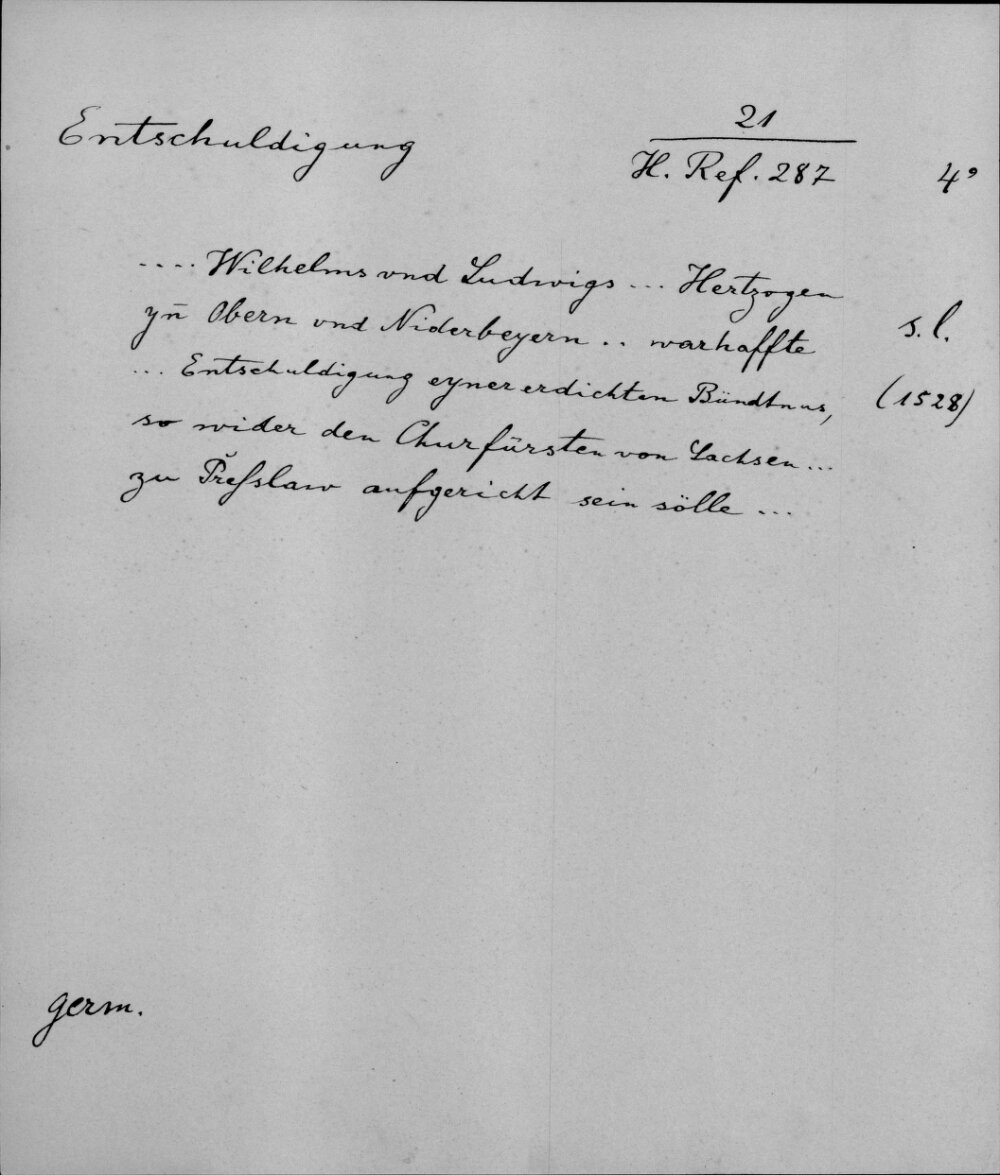 Entschuldigung
21
H. Ref. 287
4°
.... Wilhelms vnd Ludwigs ... Hertzogen
yn̄ Obern vnd Niderbeyern .. warhaffte
s. l.
... Entschuldigung eyner erdichten Bündtnus,
(1528)
so wider den Churfürsten von Sachsen ...
zu Preſslaw aufgericht sein sölle ...
germ.